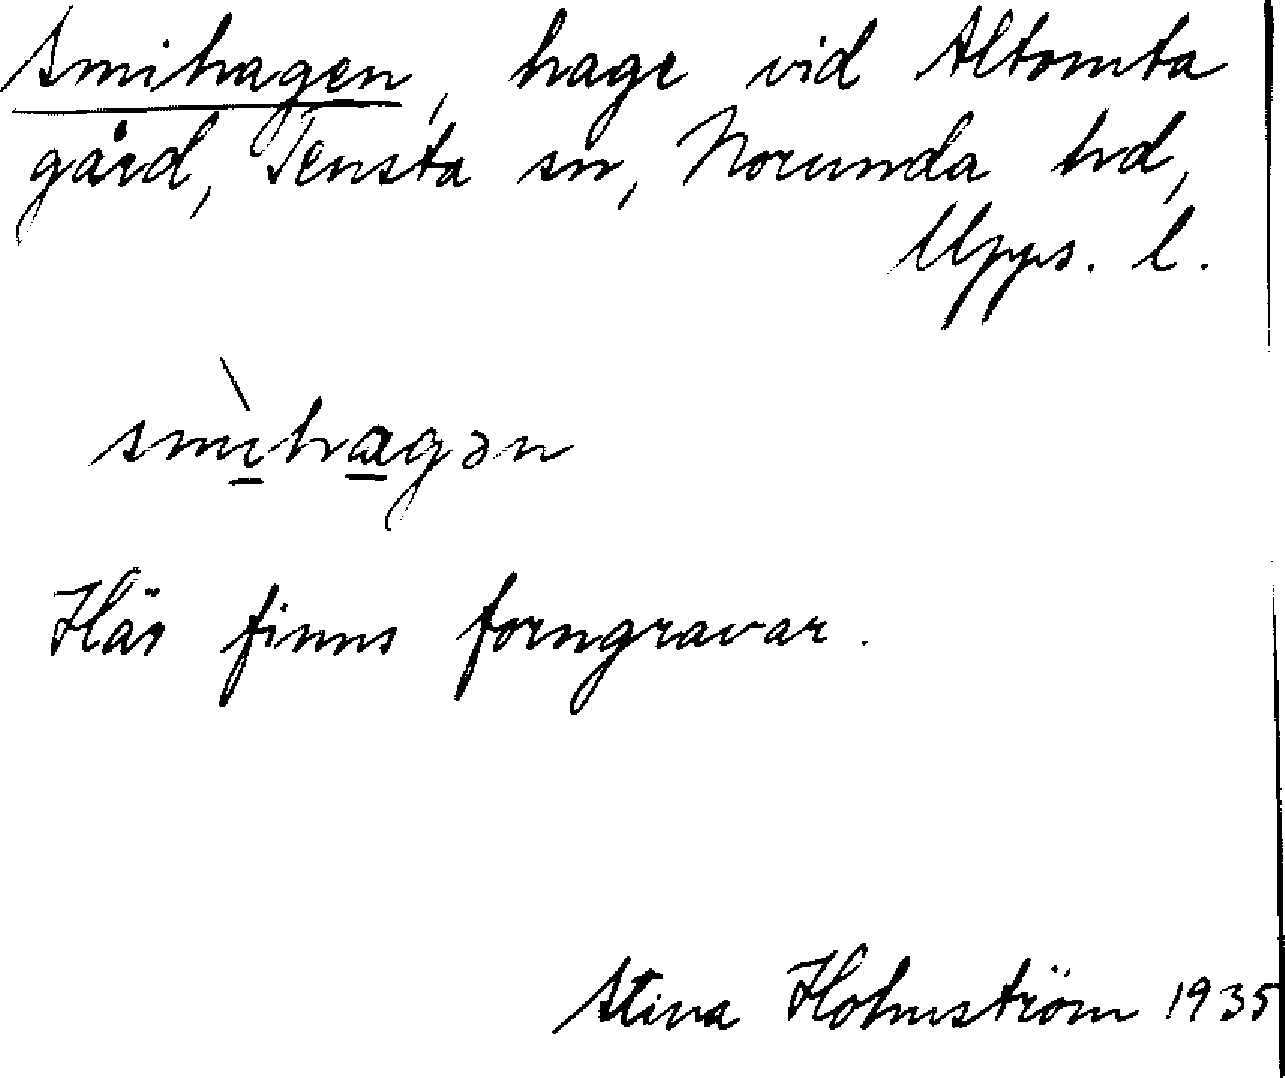 Smihagen, hage vid Altomta
gård, Tensta sn, Norunda hd,
Upps. l.
smìhagən
Här finns forngravar.
Stina Holmström 1935